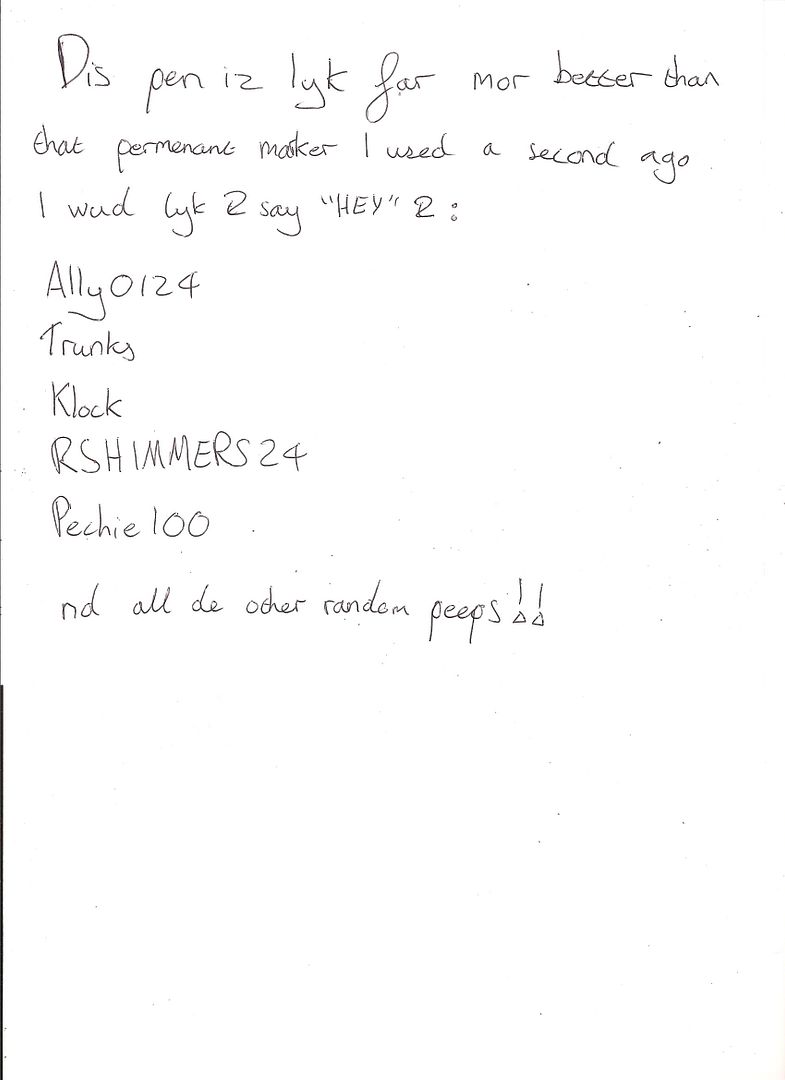 Dis pen iz lyk far mor better than
that permenant marker I used a second ago
I wud lyk 2 say "HEY" 2 :
Ally0124
Trunks
Klock
RSHIMMERS24
Pechie100
nd all de other random peeps!!